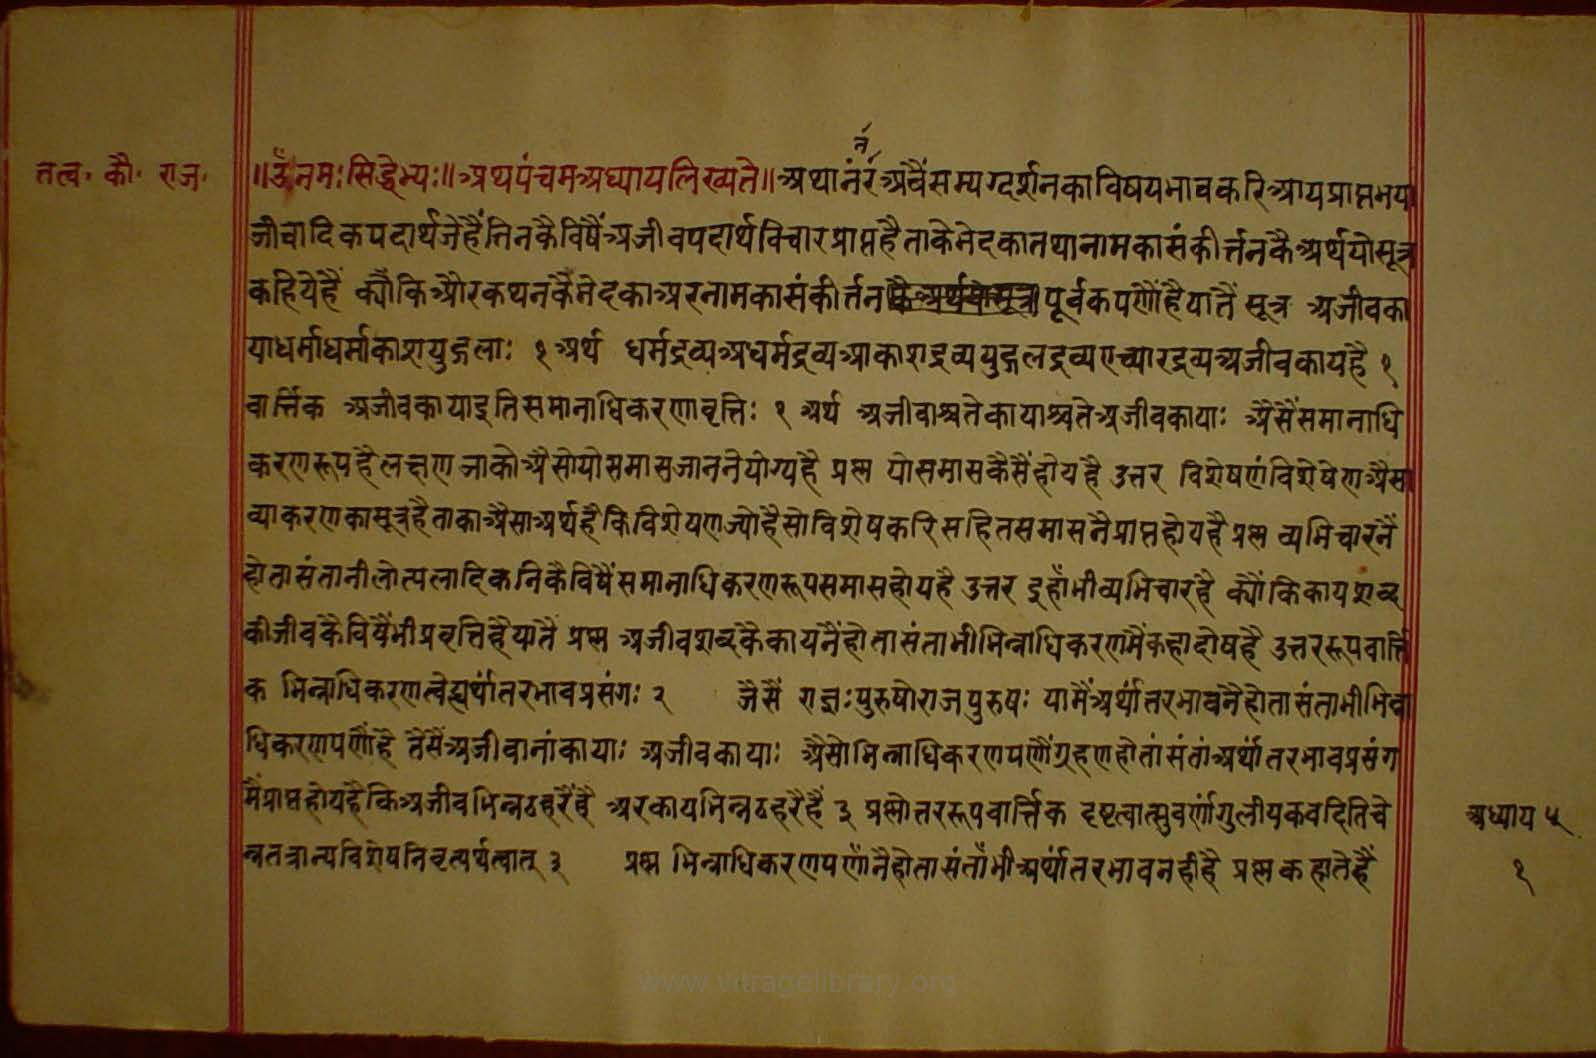 तत्व॰ कौ॰ राज॰
॥ॐनमःसिद्धेभ्यः॥अथपंचमअध्यायलिख्यते॥अथानंतरअवैंसम्यग्दर्शनकाविषयभावकरिआयप्राप्तभया
जीवादिकपदार्थजेहैंतिनकैविषैंअजीवपदार्थविचारप्राप्तहैताकेभेदकातथानामकासंकीर्त्तनकैअर्थयोसूत्र
कहियेहैं क्यौंकिऔरकथनकैंभेदकाअरनामकासंकीर्तन पूर्वकपणौंहैयातैं सूत्र अजीवका
याधर्माधर्माकाशपुद्गलाः १ अर्थ धर्मद्रव्यअधर्मद्रव्यआकाशद्रव्यपुद्गलद्रव्यएच्यारद्रव्यअजीवकायहै १
वार्त्तिक अजीवकायाइतिसमानाधिकरणावृत्तिः १ अर्थ अजीवाश्चतेकायाश्चतेअजीवकायाः अैसैंसमानाधि
करणरूपहैलक्षणजाकोअैसोयोसमासजाननेयोग्यहै प्रश्न योसमासकैसैंहोयहै उत्तर विशेषणंविशेषेणअैसा
व्याकरणकासूत्रहैताकाअैसाअर्थहैकिविशेषणज्योहैसोविशेषकरिसहितसमासनैप्राप्तहोयहै प्रश्न व्यभिचारनैं
होतासंतानीलोत्पलादिकनिकैविषैंसमानाधिकरणरूपसमासहोयहै उत्तर इहाँभीव्यभिचारहै क्यौंकिकायशब्द
कीजीवकैविषैंभीप्रवृत्तिहैयातैं प्रश्न अजीवशब्दकैकायनैंहोतासंताभीभिन्नाधिकरणमैंकहादोषहै उत्तररूपवार्त्ति
क भिन्नाधिकरणत्वेह्यर्थांतरभावप्रसंगः २ जैसैं राज्ञःपुरुषोराजपुरुषः यामैंअर्थांतरभावनैहोतासंताभीभिन्ना
धिकरणपणौंहै तैसैंअजीवानांकायाः अजीवकायाः अैसोभिन्नाधिकरणपणौंग्रहणहोतांसंतांअर्थांतरभावप्रसंग
मैंप्राप्तहोयहैकिअजीवभिन्नठहरैंहै अरकायभिन्नठहरैहैं ३ प्रश्नोत्तररूपवार्त्तिक दृष्टत्वात्सुवर्णांगुलीयकवदितिचे
न्नतत्रान्यविशेषनिवृत्यर्थत्वात् ३ प्रश्न भिन्नाधिकरणपणौंनैहोतासंताँभीअर्थांतरभावनहीहै प्रश्न कहातेहैं
अध्याय ५
१
www.vitragelibrary.org